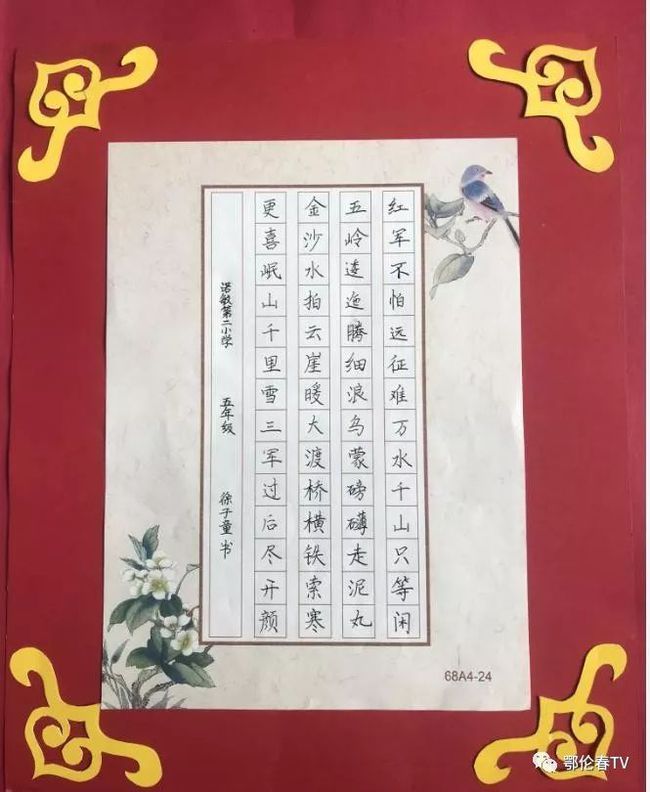 红军不怕远征难万水千山只等闲
五岭逶迤腾细浪乌蒙磅礴走泥丸
金沙水拍云崖暖大渡桥横铁索寒
更喜岷山千里雪三军过后尽开颜
诺敏第二小学 五年级 徐子童书
68A4-24
鄂伦春TV